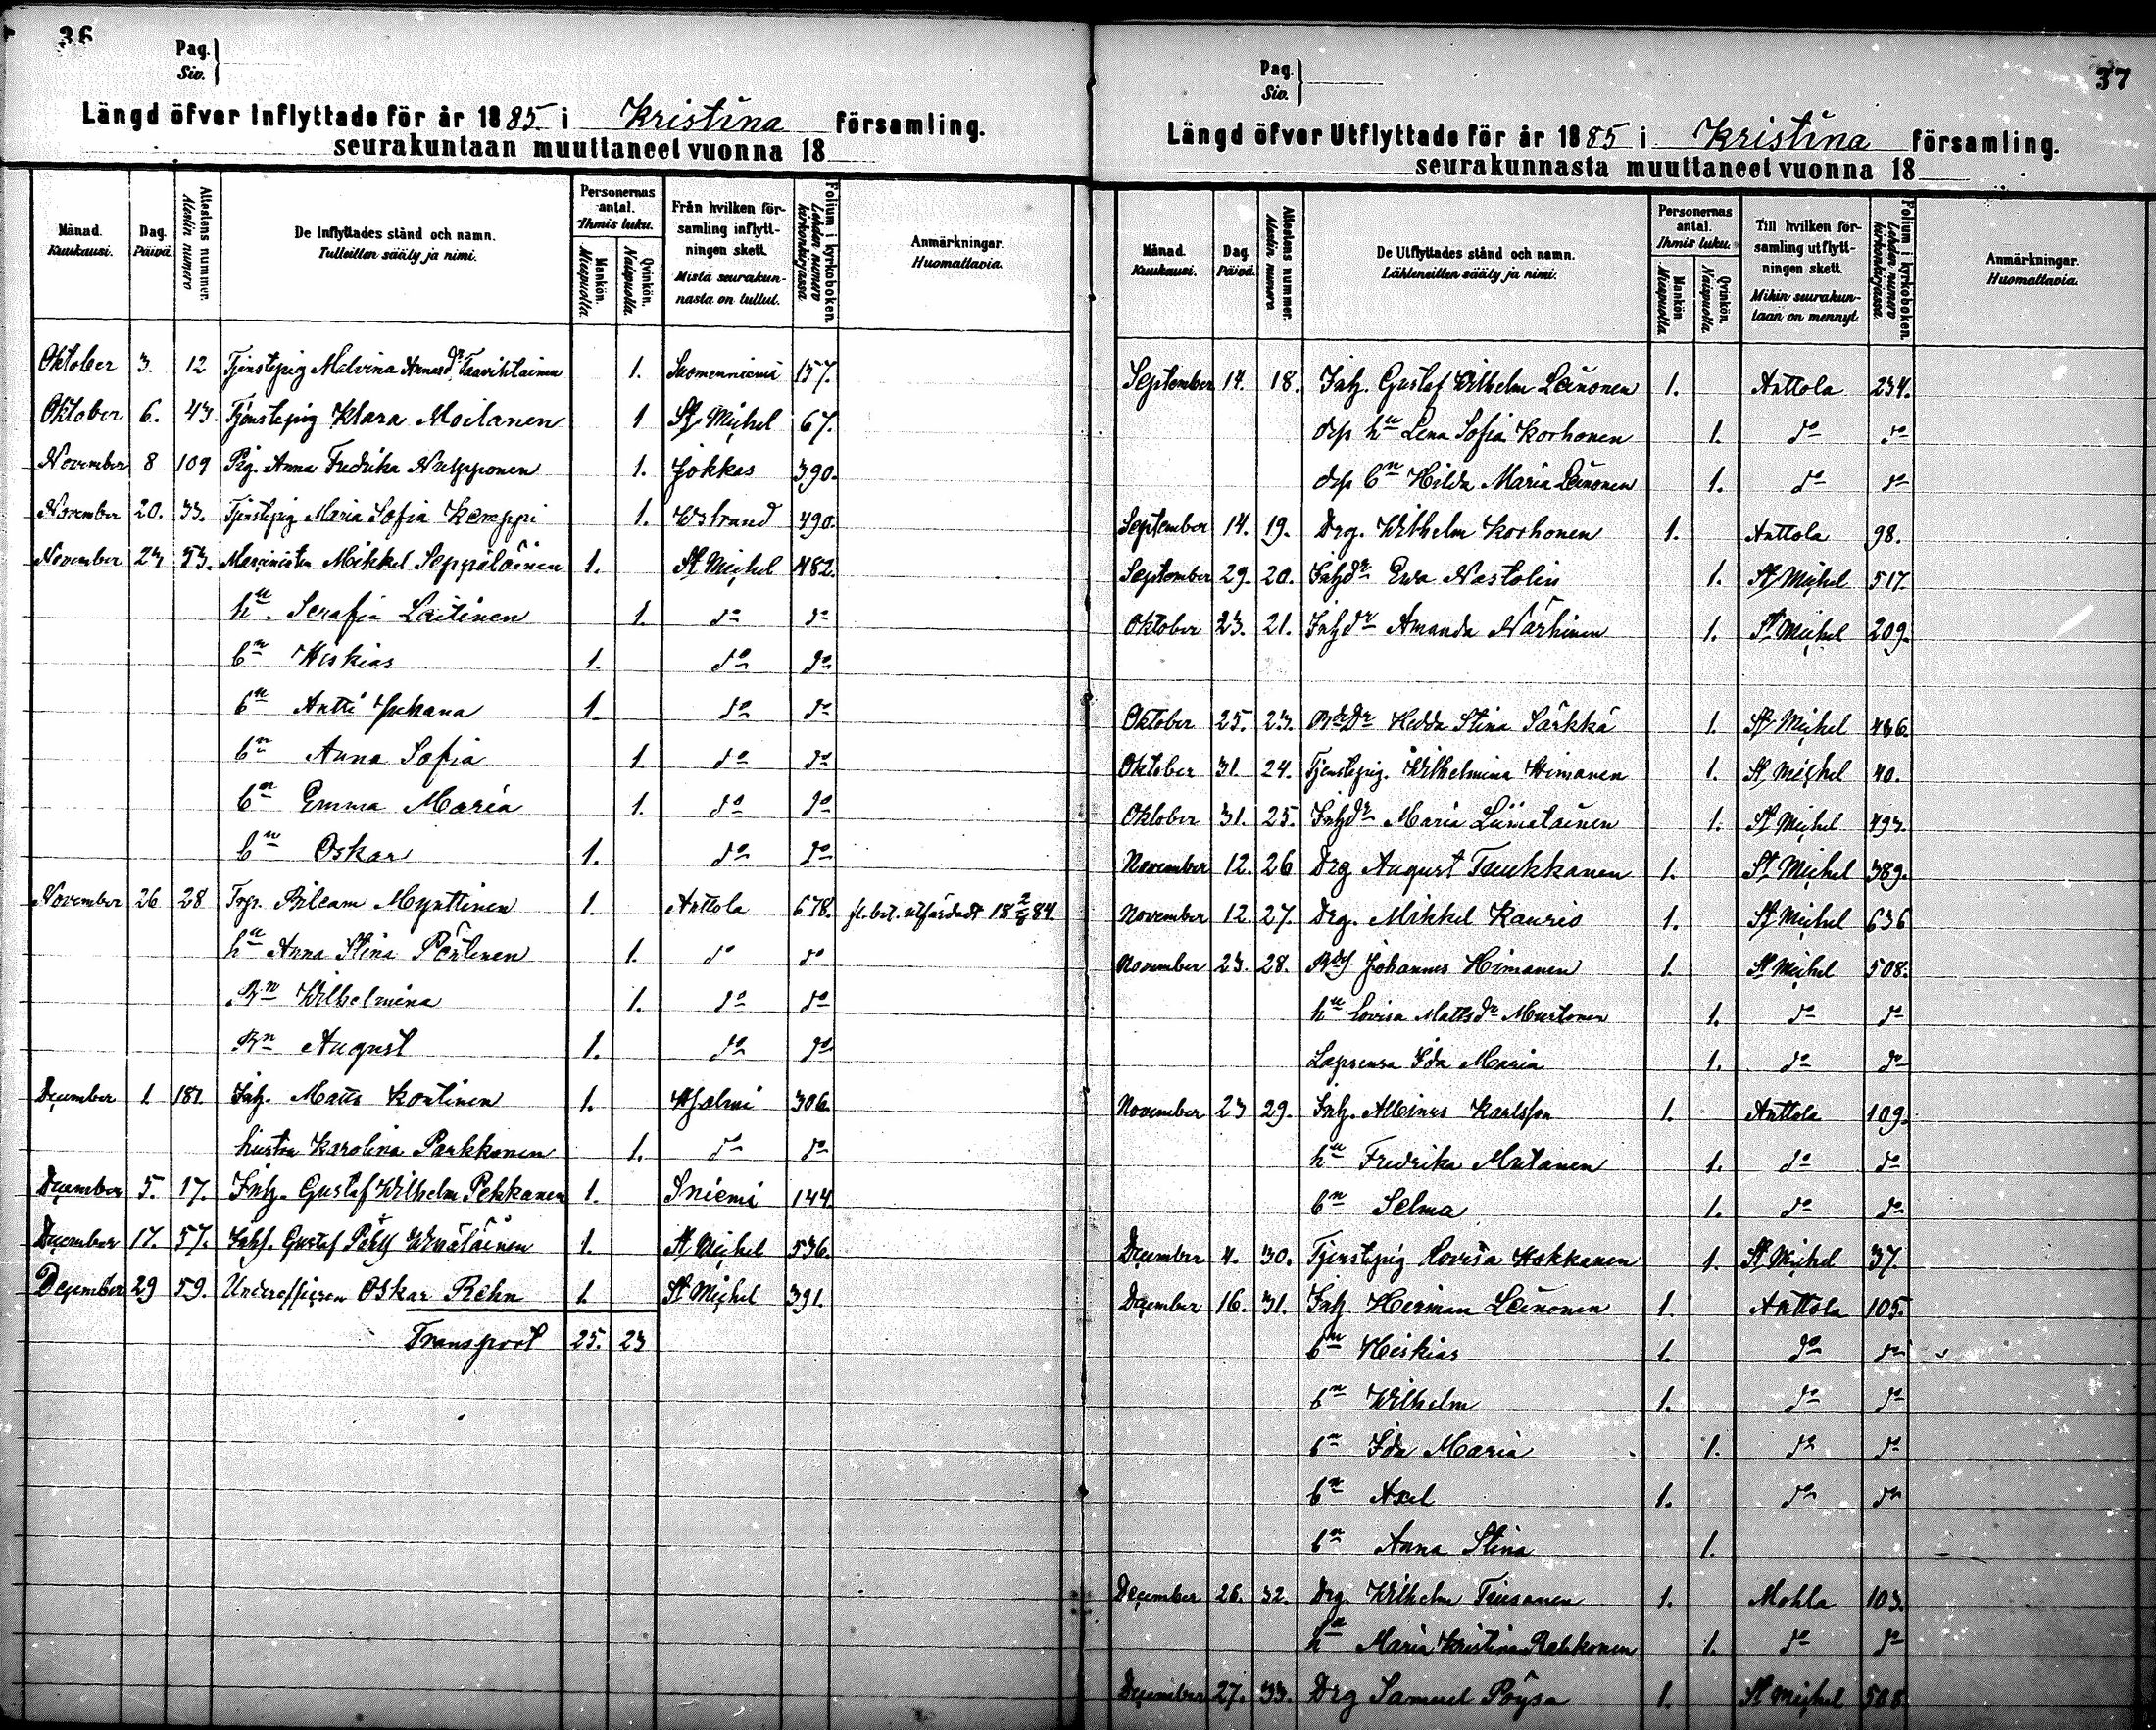 36
Pag.
Siv.
Längd öfver Inflyttade för år 1885 i Kristina församling.
seurakuntaan muuttaneet vuonna 18
Månad. Kuukausi. Dag. Päivä. Attestens nummer. Atestin numero De Inflyttades stånd och namn. Tulleitten sääty ja nimi. Personernas antal. Ihmis luku. Mankön. Miespuolia. Qvinkön. Naispuolia. Från hvilken församling inflyttningen skett. Mistä seurakunnasta on tullut. Folium i kyrkoboken. Lehden numero kirkonkirjassa Anmärkningar. Huomattavia.
Oktober 3. 12 Tjenstepig Malvina Annasdr Taavitstainen 1. Suomenniemi 157.
Oktober 6. 43. Tjenstepig Klara Moilanen 1 St Michel 67.
November 8 109 Pig. Anna Fredrika Nulpponen 1. Jokkas 390.
November 20. 33. Tjenstepig Maria Sofia Kemppi 1. Wstrand 490.
November 23 53. Mikkel Seppäläinen 1. St Michel 482.
hu. Serafia Laitinen 1. do do
bn Heskias 1. do do
bn Antti Juhana 1. do do
bn Anna Sofia 1. do do
bn Emma Maria 1. do do
bn Oskar 1. do do
November 26 28 Trp. Bileam Mynttinen 1. Anttola 678. fl. bet. utfärdadt 18 2/8 84.
hu Anna Stina Pöntinen 1. do do
Bn Wilhelmina 1. do do
Bn August 1. do do
December 1 181. Inh. Matts Kontinen 1. Hjolmi 306.
hustru Karolina Parkkonen 1. do do
December 5. 17. Inh. Gustaf Wilhelm Pekkanen 1. Sniemi 144.
December 17. 57. Gustaf 1. St Michel 536.
December 29 59. Underofficeren Oskar Rehn 1. St Michel 391.
Transport 25. 23
37
Pag.
Siv.
Längd öfver Utflyttade för år 1885 i Kristina församling.
seurakunnasta muuttaneet vuonna 18
Månad. Kuukausi. Dag. Päivä. Attestens nummer. Atestin numero De Utflyttades stånd och namn. Lähteneitten sääty ja nimi. Personernas antal. Ihmis luku. Mankön. Miespuolia. Qvinkön. Naispuolia. Till hvilken församling utflyttningen skett. Mihin seurakuntaan on mennyt. Folium i kyrkoboken. Lehden numero kirkonkirjassa. Anmärkningar. Huomattavia.
September 14. 18. Inh. Gustaf Wilhelm Leinonen 1. Anttola 234.
dess hu Lena Sofia Korhonen 1. do do
dess bn Hilda Maria Leinonen 1. do do
September 14. 19. Drg. Wilhelm Korhonen 1. Anttola 98.
September 29. 20. Inhdr Ewa Nastolin 1. St Michel 517.
Oktober 23. 21. Inhdr Amanda Närhinen 1. St Michel 209.
Oktober 25. 23. Bdedr Hedda Stina Särkkä 1. St Michel 436.
Oktober 31. 24. Tjenstepig. Wilhelmina Himanen 1. St Michel 40.
Oktober 31. 25. Inhdr Maria Liimatainen 1. St Michel 493.
November 12. 26 Drg August Tuukkanen 1. St Michel 389.
November 12. 27. Drg. Mikkel Kauris 1. St Michel 636
November 23. 28. Johannes Himanen 1. St Michel 508.
hu Lovisa Mattsdr Mustonen 1. do do
Ida Maria 1. do do
November 23 29. Inh. Karlsson 1. Anttola 109.
hu Fredrika Mutanen 1. do do
bn Selma 1. do do
December 4. 30. Tjenstepig Lovisa Hokkanen 1. St Michel 37.
December 16. 31. Inh Herman Leinonen 1. Anttola 105.
bn Heskias 1. do do
bn Wilhelm 1. do do
bn Ida Maria 1. do do
bn Axel 1. do do
bn Anna Stina 1.
December 26. 32. Drg. Wilhelm Tiusanen 1. Mohla 103.
hu Maria Kristina Rahkonen 1. do do
December 27. 33. Drg Samuel Pöysä 1. St Michel 508.